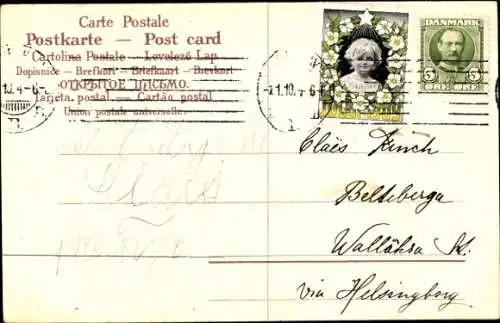 Carte Postale
Postkarte – Post card
Cartolina Postale – Levelező Lap
Dopisnice – Brefkort – Briefkaart – Brevkort
ОТКРЫТОЕ ПИСЬМО.
Tarjeta postal – Cartão postal
Union postale universelle.
DANMARK
5 5
Claës
Beltеberga
Wallåkra St.
via Helsingborg
Claës